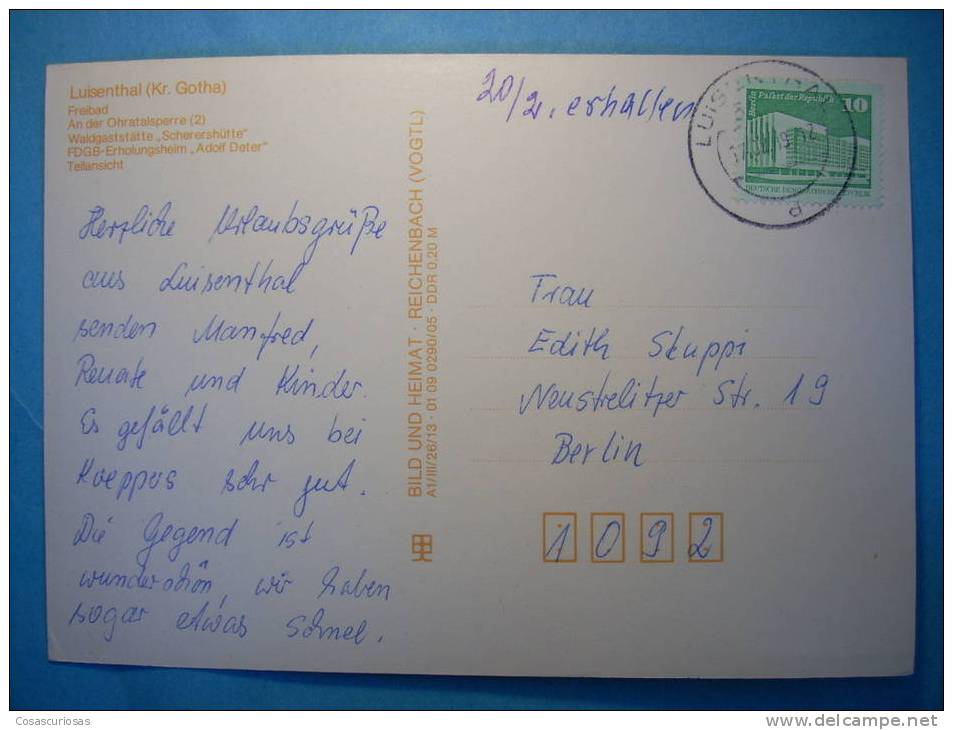 Luisenthal (Kr. Gotha)
Freibad
An der Ohratalsperre (2)
Waldgaststätte „Scherershütte"
FDGB-Erholungsheim „Adolf Deter"
Teilansicht
Herzliche Urlaubsgrüße
aus Luisenthal
senden Manfred,
Renate und Kinder.
Es gefällt uns bei
Koeppos sehr gut.
Die Gegend ist
wunderschön, wir haben
sogar etwas Schnee.
BILD UND HEIMAT · REICHENBACH (VOGTL)
A1/III/26/13 · 01 09 0290/05 · DDR 0,20 M
20/2. erhalten
Berlin Palast der Republik 10
DEUTSCHE DEMOKRATISCHE REPUBLIK
Frau
Edith Skuppi
Neustrelitzer Str. 19
Berlin
1092
Cosascuriosas
www.delcampe.net